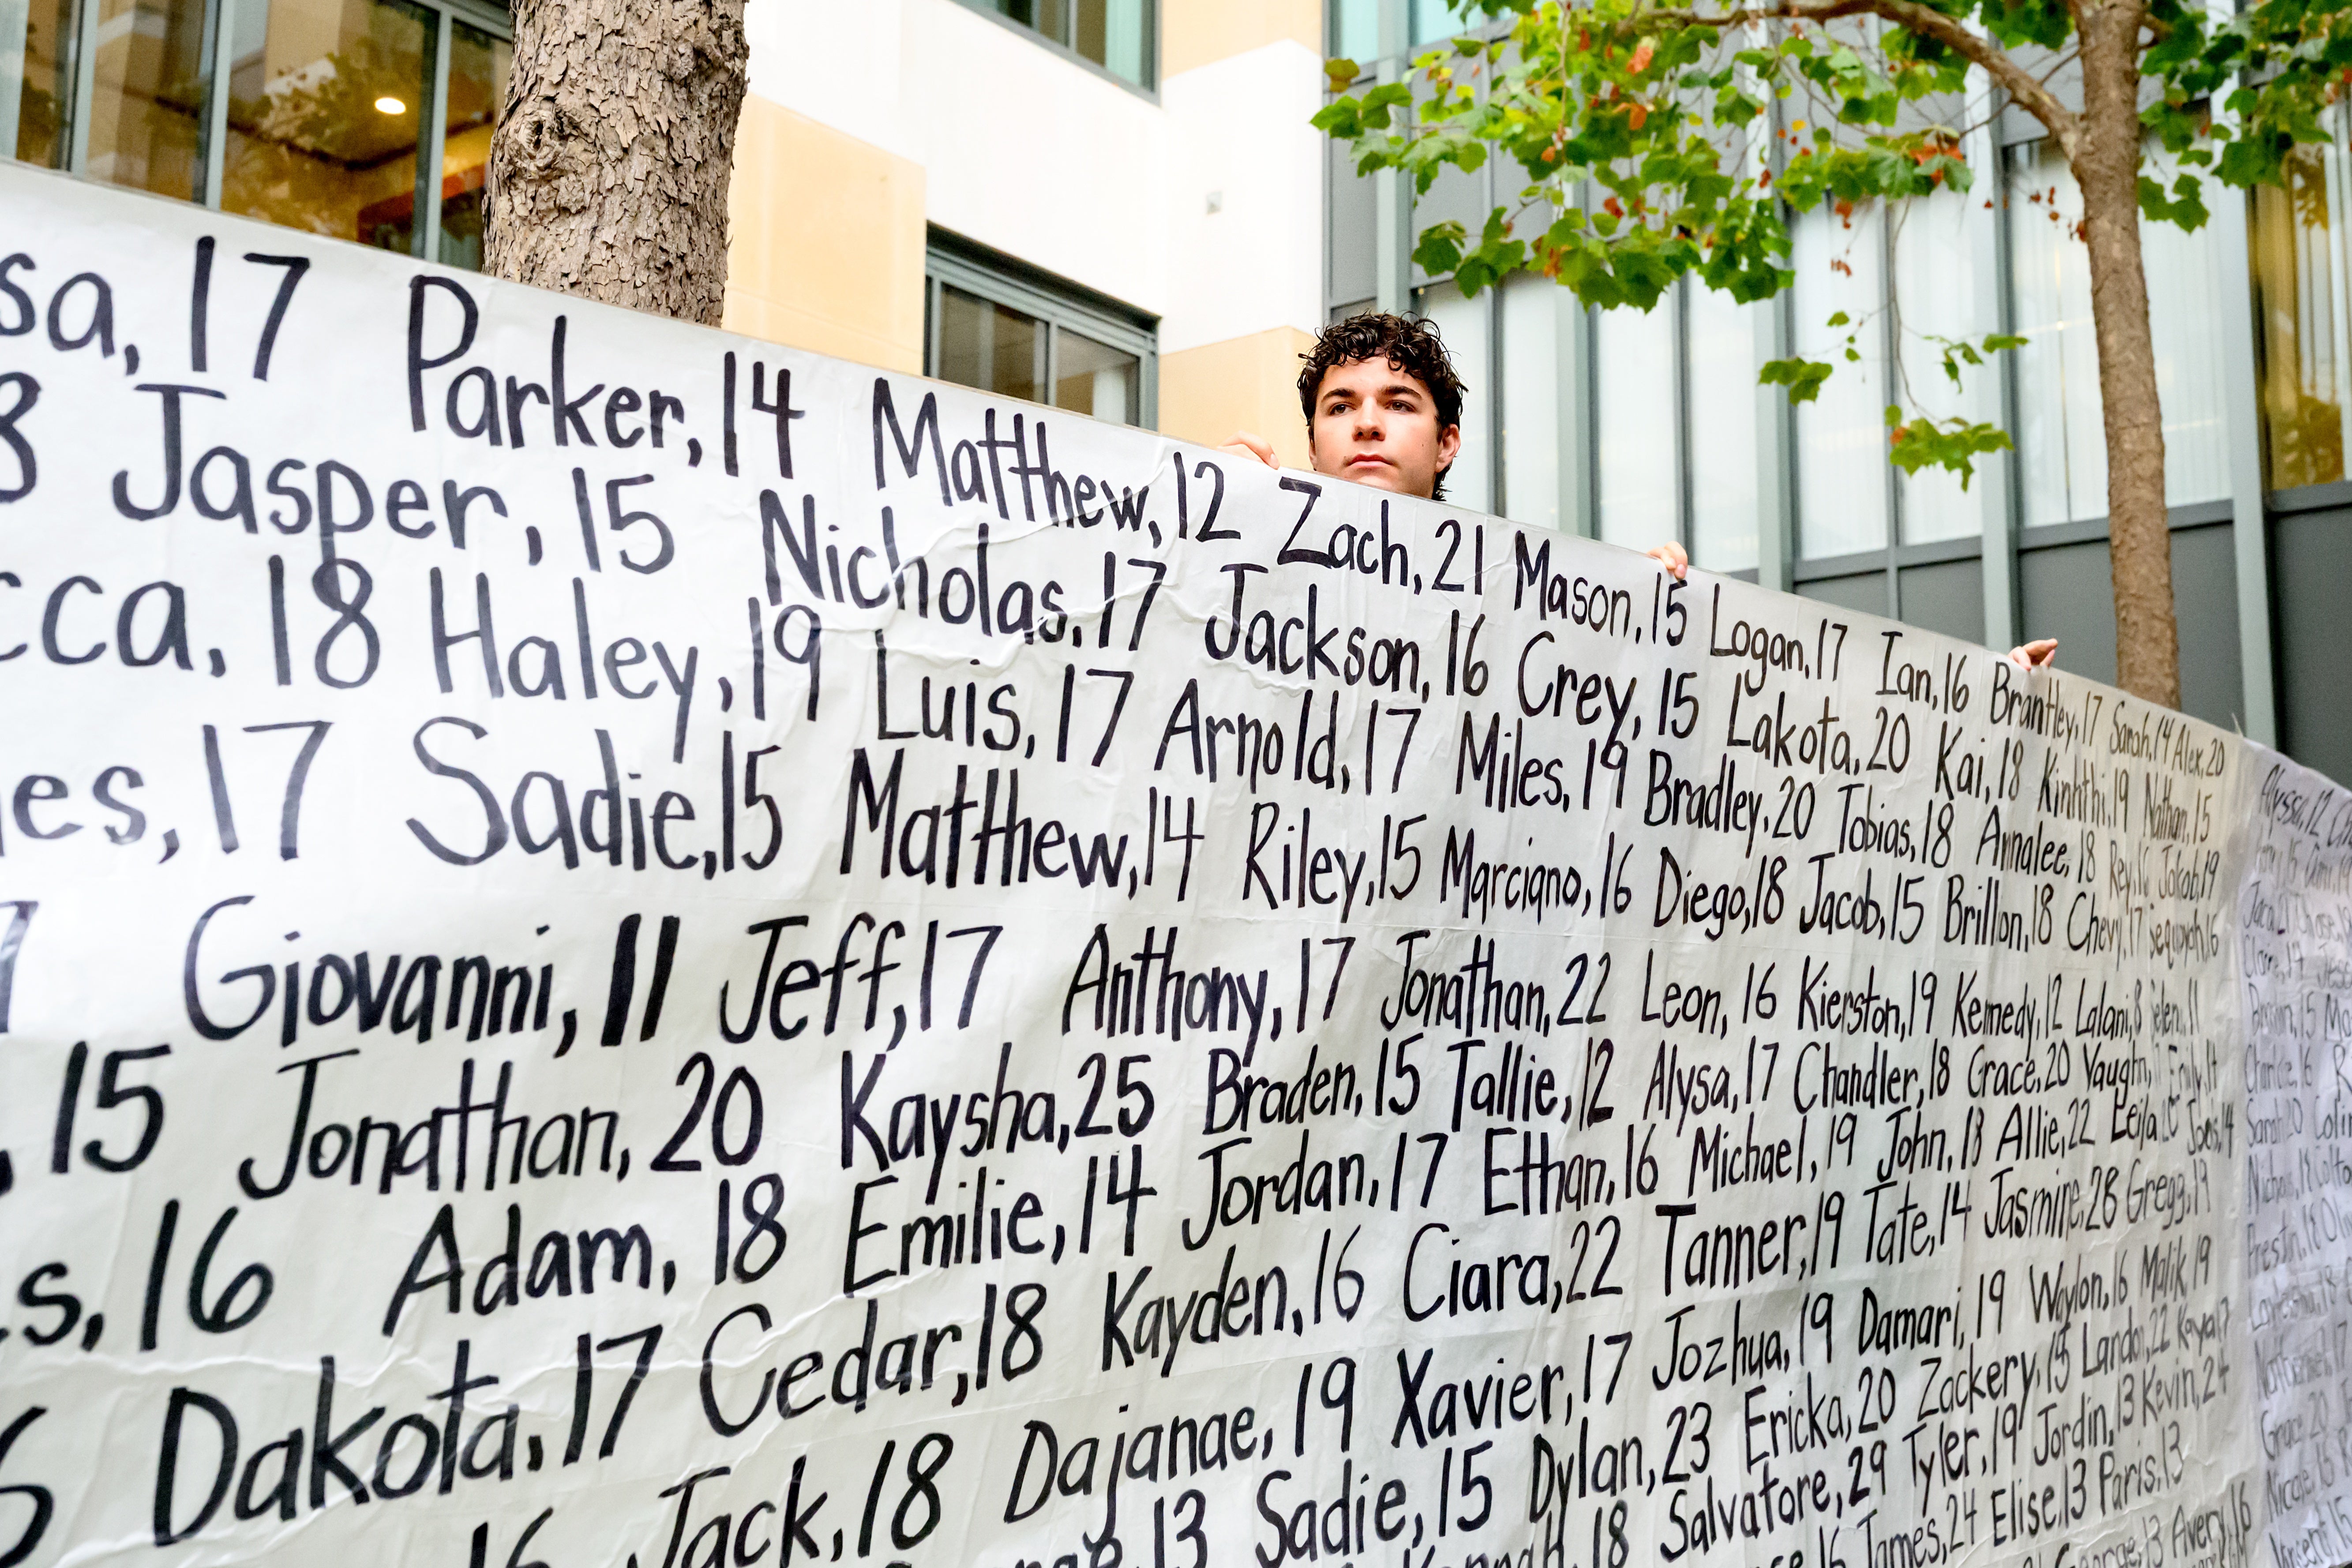 sa, 17 Parker, 14 Matthew, 12 Zach, 21 Mason, 15 Logan, 17 Ian, 16 Brantley, 17 Sarah, 14 Alex, 20
8 Jasper, 15 Nicholas, 17 Jackson, 16 Crey, 15 Lakota, 20 Kai, 18 Kinhthi, 19 Nathan, 15
cca, 18 Haley, 19 Luis, 17 Arnold, 17 Miles, 19 Bradley, 20 Tobias, 18 Annalee, 18 Rey, 16 Jakob, 19
es, 17 Sadie, 15 Matthew, 14 Riley, 15 Marciano, 16 Diego, 18 Jacob, 15 Brillon, 18 Chevy, 17 Sequoyah, 16
7 Giovanni, 11 Jeff, 17 Anthony, 17 Jonathan, 22 Leon, 16 Kierston, 19 Kennedy, 12 Lalani, 8
, 15 Jonathan, 20 Kaysha, 25 Braden, 15 Tallie, 12 Alysa, 17 Chandler, 18 Grace, 20 Vaughn,
s, 16 Adam, 18 Emilie, 14 Jordan, 17 Ethan, 16 Michael, 19 John, 18 Allie, 22 Leila
6 Dakota, 17 Cedar, 18 Kayden, 16 Ciara, 22 Tanner, 19 Tate, 14 Jasmine, 28 Gregg, 19
16 Jack, 18 Dajanae, 19 Xavier, 17 Jozhua, 19 Damari, 19 Waylon, 16 Malik, 19
13 Sadie, 15 Dylan, 23 Ericka, 20 Zackery, 15 Landon, 22 Kaya
18 Salvatore, 29 Tyler, 19 Jordin, 13 Kevin, 24
16 James, 24 Elise, 13 Paris, 13
13 Avery, 16
Alyssa, 12